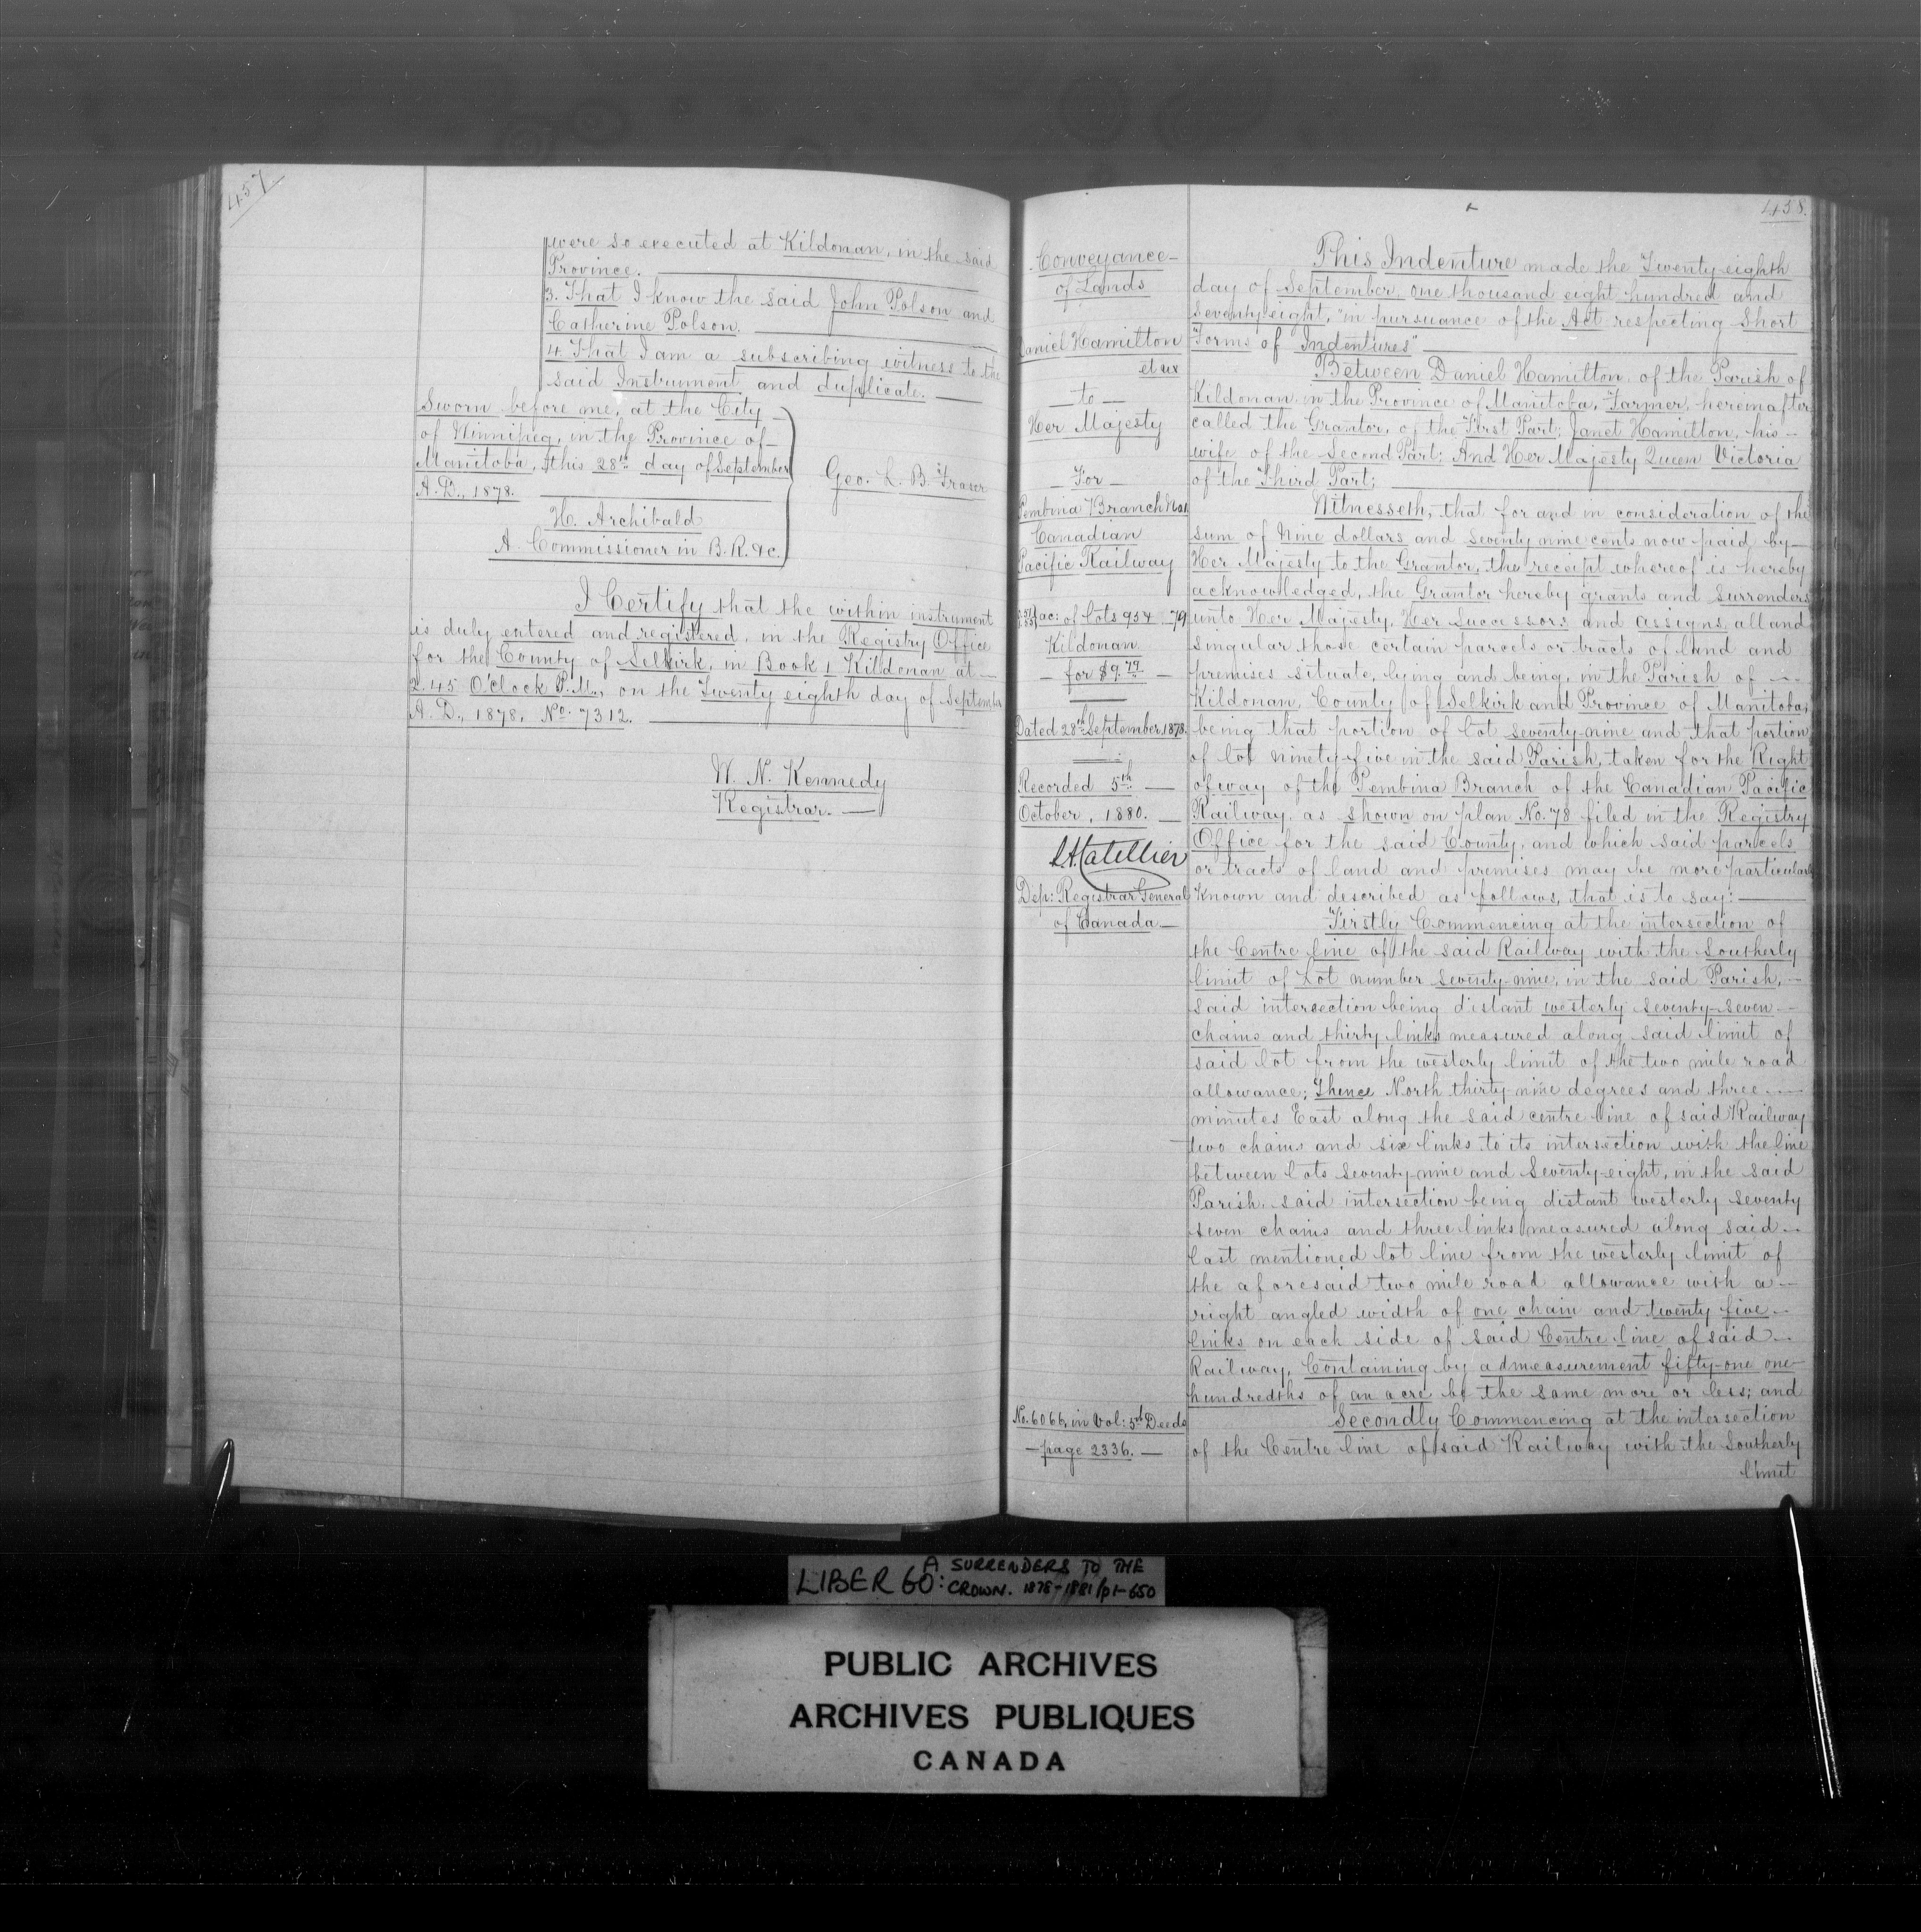 457
were so executed at Kildonan, in the said
Province.
3. That I know the said John Polson and
Catherine Polson.
4. That I am a subscribing witness to the
said Instrument and duplicate.
Sworn before me, at the City
of Winnipeg, in the Province of
Manitoba, this 28th day of September
A.D., 1878.
H. Archibald
A Commissioner in B.R. &c.
Geo. L. B. Fraser
I Certify that the within instrument
is duly entered and registered, in the Registry Office
for the County of Selkirk, in Book 1 Kildonan at
2.45 O'Clock P.M., on the Twenty eighth day of September
A.D., 1878, No. 7312.
W. N. Kennedy
Registrar.
458.
Conveyance
of Lands
Daniel Hamilton
et ux
to
Her Majesty
For
Pembina Branch
Canadian
Pacific Railway
ac: of Lots 95 & 79
Kildonan
for $9.79
Dated 28th September, 1878.
Recorded 5th
October, 1880.
Dep: Registrar General
of Canada
No. 6066, in Vol: 5th Deeds
page 2336.
This Indenture made the Twenty eighth
day of September, one thousand eight hundred and
seventy eight, "in pursuance of the Act respecting Short
Forms of Indentures"
Between Daniel Hamilton, of the Parish of
Kildonan in the Province of Manitoba, Farmer, hereinafter
called the Grantor, of the First Part; Janet Hamilton, his
wife of the Second Part; And Her Majesty Queen Victoria
of the Third Part;
Witnesseth, that for and in consideration of the
sum of Nine dollars and seventy nine cents now paid by
Her Majesty to the Grantor, the receipt whereof is hereby
acknowledged, the Grantor hereby grants and surrenders
unto Her Majesty, Her Successors and assigns, all and
singular those certain parcels or tracts of land and
premises situate, lying and being, in the Parish of
Kildonan, County of Selkirk and Province of Manitoba,
being that portion of lot seventy-nine and that portion
of lot ninety-five in the said Parish, taken for the Right
of way of the Pembina Branch of the Canadian Pacific
Railway, as shown on plan No. 78 filed in the Registry
Office for the said County, and which said parcels
or tracts of land and premises may be more particularly
known and described as follows, that is to say:
Firstly Commencing at the intersection of
the Centre line of the said Railway with the Southerly
limit of Lot number seventy-nine, in the said Parish,
said intersection being distant westerly seventy-seven
chains and thirty links measured along said limit of
said lot from the westerly limit of the two mile road
allowance; Thence North thirty-nine degrees and three
minutes East along the said centre line of said Railway
two chains and six links to its intersection with the line
between lots seventy-nine and seventy-eight, in the said
Parish, said intersection being distant westerly seventy
seven chains and three links measured along said
last mentioned lot line from the westerly limit of
the aforesaid two mile road allowance with a
right angled width of one chain and twenty five
links on each side of said Centre line of said
Railway, Containing by admeasurement fifty-one one
hundredths of an acre be the same more or less; and
Secondly Commencing at the intersection
of the Centre line of said Railway with the Southerly
limit
LIBER 60: A SURRENDERS TO THE
CROWN. 1878-1881/p1-650
PUBLIC ARCHIVES
ARCHIVES PUBLIQUES
CANADA